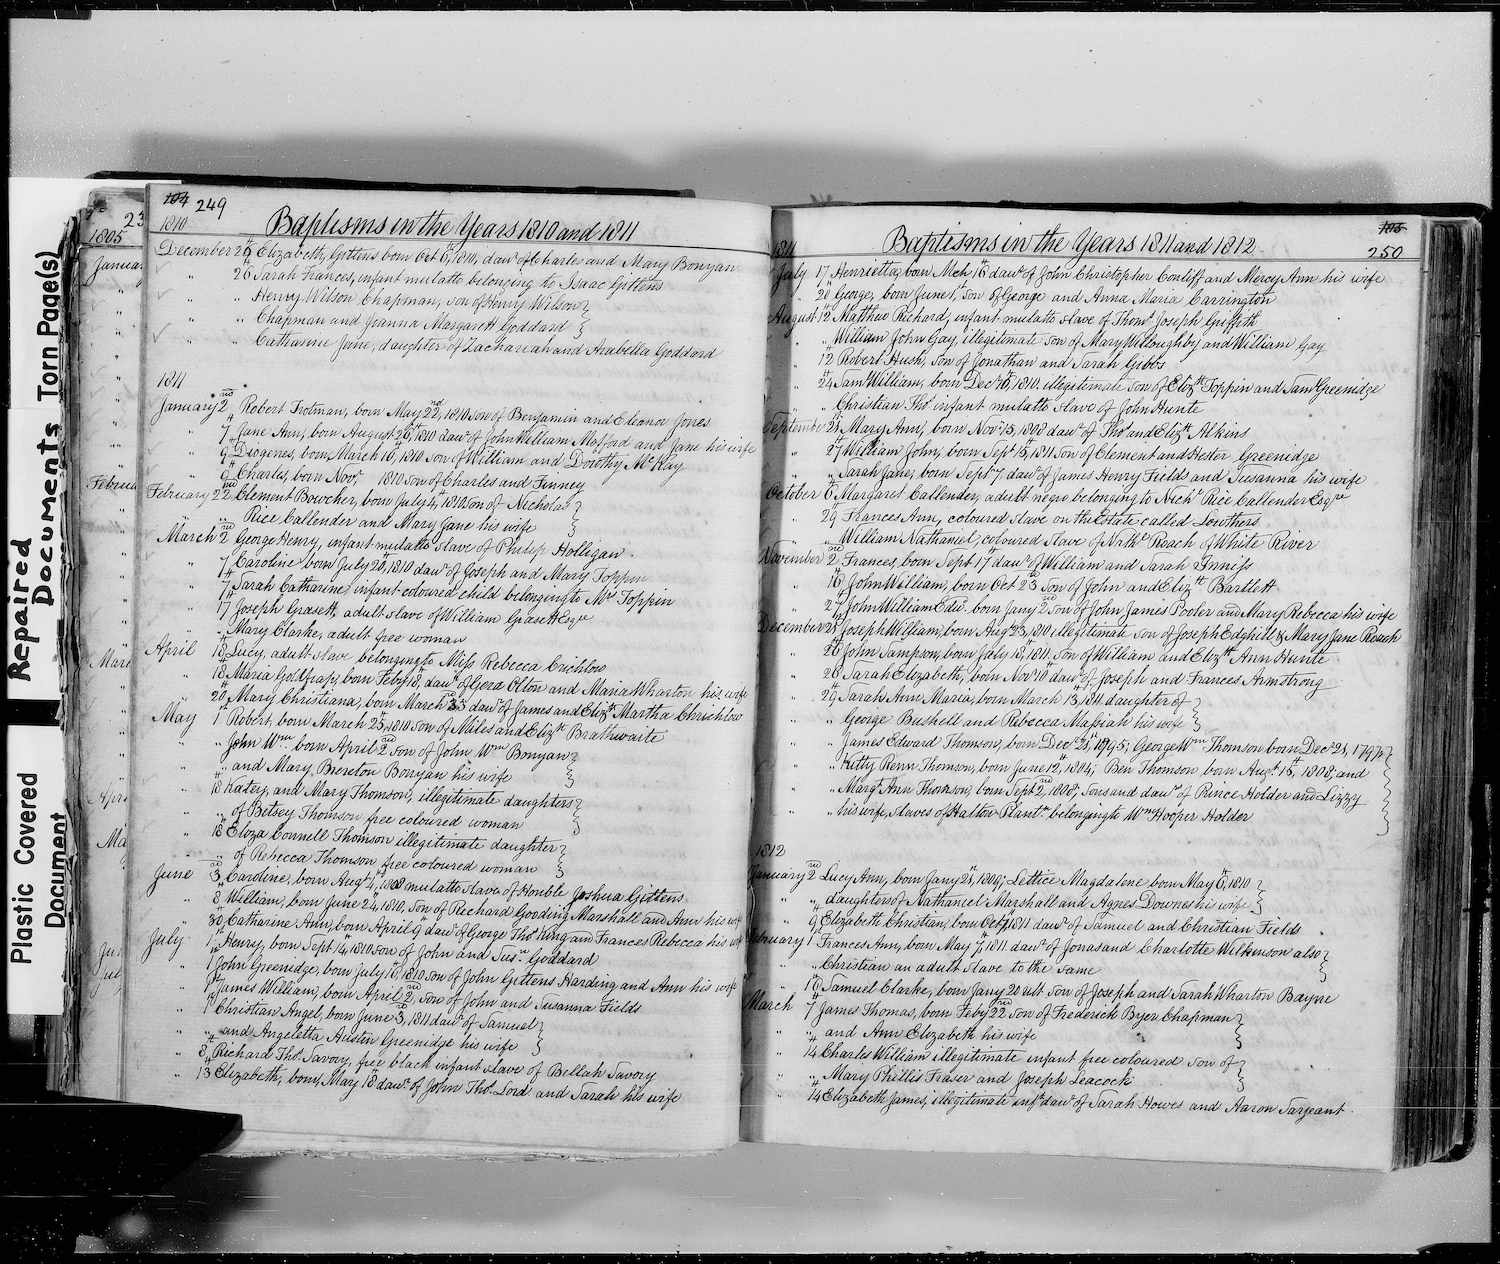 Repaired Documents Torn Page(s)
Plastic Covered Document
23
1805
Januar
Februa
Marc
Apri
Ma
Jun
Jul
104 249
1810
Baptisms in the Years 1810 and 1811
December 26 Elizabeth Gittens born Oct 6th, 1810, daur of Charles and Mary Bonyan
" 26 Sarah Frances, infant mulatto belonging to Isaac Gittens
" " Henry Wilson Chapman, son of Henry Wilson }
" " Chapman and Joanna Margarett Goddard }
" " Catharine Jane, daughter of Zachariah and Arabella Goddard
1811
January 2nd Robert Trotman, born May 22nd, 1810 son of Benjamin and Eleonor Jones
" 7th Jane Ann, born August 26th, 1810 daur of John William Mafford and Jane his wife
" 9th Diogenes, born March 10, 1810 son of William and Dorothy McKay
" 9th Charles, born Novr 1810 son of Charles and Finney
February 22nd Clement Bowcher, born July 4th, 1810 son of Nicholas }
" " Rice Callender and Mary Jane his wife }
March 2nd George Henry, infant mulatto slave of Philip Holligan
" 7th Caroline born July 20th, 1810 daur of Joseph and Mary Toppin
" 7th Sarah Catharine, infant coloured child belonging to Mrs Toppin
" 17th Joseph Grasett, adult slave of William Grasett Esqre
" " Mary Clarke, adult free woman
April 18 Lucy, adult slave belonging to Miss Rebecca Crichlow
" 18th Maria Goldfrap, born Feby 18th, daur of Gera Olton and Maria Wharton his wife
" 20th Mary Christiana, born March 23rd daur of James and Elizth Martha Chrichlow
May 1 Robert, born March 25th, 1810 son of Miles and Elizth Brathwaite
" " John Wm born April 2nd son of John Wm Bonyan }
" " and Mary Brereton Bonyan his wife }
" 18th Katey, and Mary Thomson, illegitimate daughters }
" " of Betsey Thomson free coloured woman }
" 18th Eloza Connell Thomson illegitimate daughter }
" " of Rebecca Thomson free coloured woman }
June 3rd Caroline, born Augt 4th, 1808 mulatto slave of Honble Joshua Gittens
" 8th William, born June 24, 1810, son of Richard Gording Marshall and Ann his wife
" 30 Catharine Ann, born April 9th daur of George Thos King and Frances Rebecca his wife
July 1st Henry, born Sept 14, 1810 son of John and Susn Goddard
" 1 John Greenidge, born July 6th, 1810 son of John Gittens Harding and Ann his wife
" 1st James William, born April 2nd, son of John and Susanna Fields
" 1st Christian Angel, born June 3, 1811 daur of Samuel }
" " and Angeletta Austin Greenidge his wife }
" 8th Richard Thos Savory, free black infant slave of Bellah Savory
" 13 Elizabeth, born May 18th daur of John Thos Lord and Sarah his wife
105
250
1811
Baptisms in the Years 1811 and 1812
July 17 Henrietta, born Mch 16th daur of John Christopher Conliff and Mercy Ann his wife
" 20th George, born June 1st son of George and Anna Maria Carrington
August 12th Matthw Richard, infant mulatto slave of Thomr Joseph Griffith
" " William John Gay, illegitimate son of Mary Willoughby and William Gay
" 12 Robert Hush, son of Jonathan and Sarah Gibbs
" 24th Sam Williams, born Decr 6th, 1810, illegitimate son of Elizth Toppin and Saml Greenidge
" " Christian Thos infant mulatto slave of John Hunte
September 25 Mary Ann, born Novr 13, 1808 daur of Thos and Elizth Alkins
" 27th William John, born Septr 15th, 1811 son of Clement and Hester Greenidge
" " Sarah Jane, born Septr 7, daur of James Henry Fields and Susanna his wife
October 6th Margaret Callender, adult negro belonging to Nichs Rice Callender Esqre
" 29 Frances Ann, coloured slave on the Estate called Lowthers
" " William Nathaniel, coloured slave of Nathl Roach of White River
November 2nd Frances, born Septr 17th daur of William and Sarah Inniss
" 16th John William, born Oct 23rd son of John and Elizth Bartlett
" 27th John William Edw. born Jany 2nd son of John James Pooler and Mary Rebecca his wife
December 25 Joseph William, born Augt 23, 1810 illegitimate son of Joseph Edghill & Mary Jane Roach
" 26th John Sampson, born July 18, 1811 son of William and Elizth Ann Hunte
" 26 Sarah Elizabeth, born Novr 10th daur of Joseph and Frances Armstrong
" 29th Sarah Ann Maria, born March 13th, 1811 daughter of }
" " George Bushell and Rebecca Massiah his wife }
" " James Edward Thomson, born Decr 25th, 1795; George Wm Thomson born Decr 21, 1797; }
" " Kitty Renn Thomson, born June 12th, 1804; Ben Thomson born Augt 15th, 1808; and
" " Margt Ann Thomson, born Septr 2nd, 1808; sons and daurs of Prince Holder and Lizzy
" " his wife, slaves of Halton Plantn belonging to Wm Hooper Holder
1812
January 2nd Lucy Ann, born Jany 25th, 1809; Lettice Magdalene born May 6th, 1810 }
" " daughters of Nathaniel Marshall and Agnes Downes his wife }
" 9th Elizabeth Christian, born Oct 1811 daur of Samuel and Christian Fields
February 1 Frances Ann, born May 7th, 1811 daur of Jonas and Charlotte Wilkinson also }
" " Christian an adult slave to the same }
" 16th Samuel Clarke, born Jany 20 ult son of Joseph and Sarah Wharton Bayne
March 7th James Thomas, born Feby 22nd son of Frederick Byer Chapman }
" " and Ann Elizabeth his wife }
" 14th Charles William illegitimate infant free coloured son of }
" " Mary Phillis Fraser and Joseph Leacock }
" 14th Elizabeth James, illegitimate inft daur of Sarah Howes and Aaron Sargeant